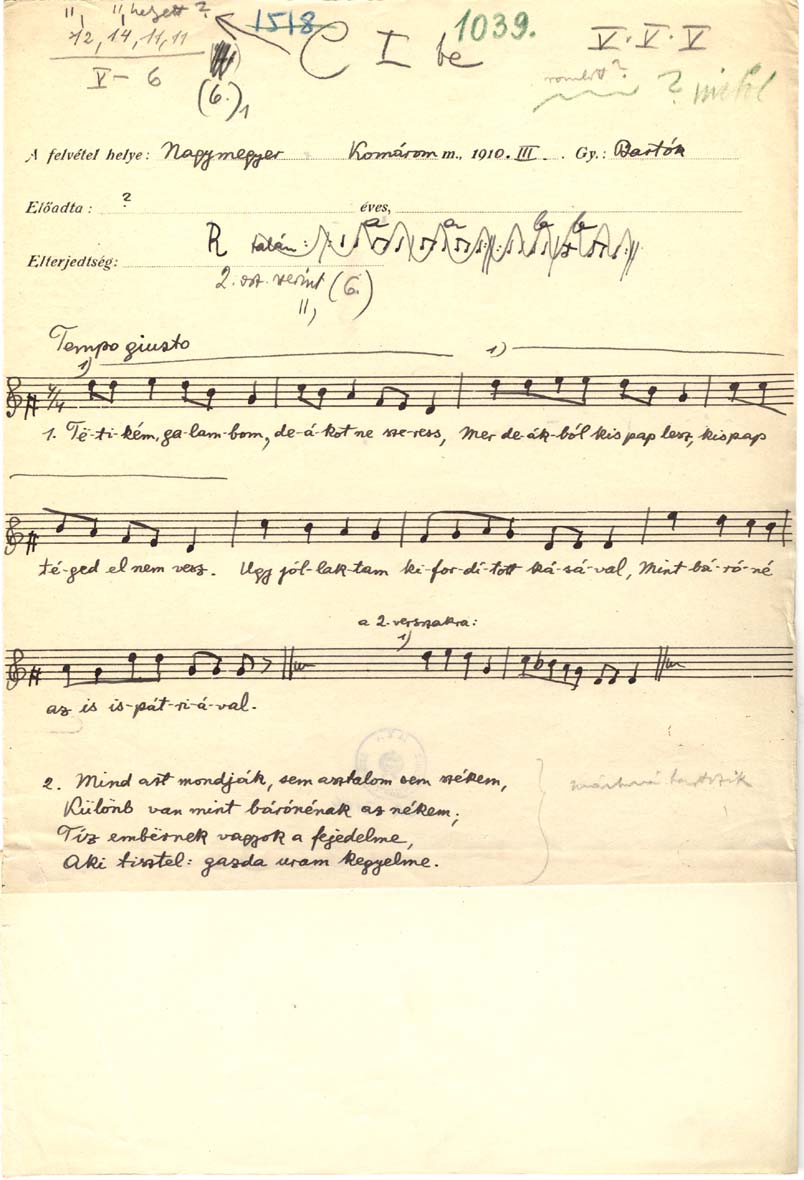 11, 11, helyett ?
12, 14, 11, 11
V – 6
(6.)1
1518
C I be
1039.
V. V. V
romlott ?
?
A felvétel helye: Nagymegyer Komárom m., 1910. III. Gy.: Bartók
Előadta : ? éves,
R talán : a a b b
Elterjedtség:
2. vsz. szerint (6.)
11,
Tempo giusto
1) 1)
4/4
1. Të-ti-kém, ga-lam-bom, de-á-kot ne sze-ress, Mer de-ák-ból kis pap lesz, kis pap
té-ged el nem vesz. Ugy jól-lak-tam ki-for-dí-tott ká-sá-val, Mint bá-ró-né
a 2. versszakra:
1)
az is is-pát-ri-á-val.
2. Mind azt mondják, sem asztalom sem székem,
Különb van mint bárónénak az nékem;
Tíz embërnek vagyok a fejedelme,
Aki tisztel: gazda uram kegyelme.
máshová tartozik